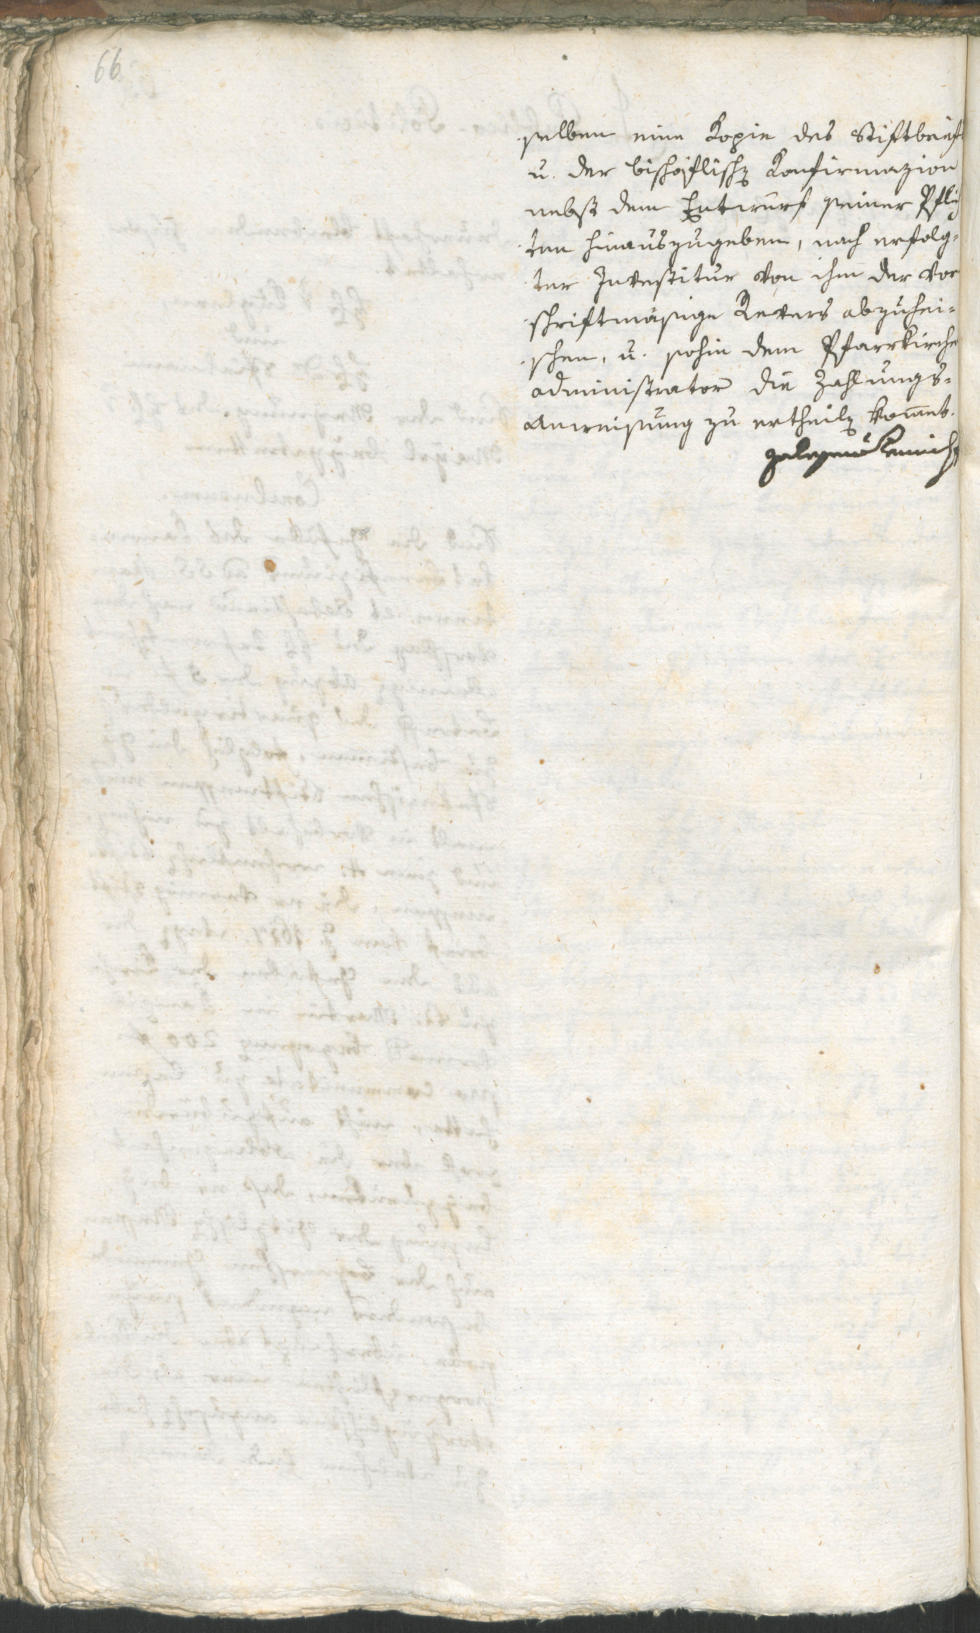 66
selben eine Kopie des Stiftbrief
u. der bischöflisch Konfirmazion
nebst dem Entwurf seiner Pfli
ten hinauszugeben, nach erfolg-
ter Investitur von ihm der vor
schriftmäsige Revers abzuhei-
schen, u. sohin dem Pfarrkirche
administrator die Zahlungs-
Anweisung zu ertheil kommt.